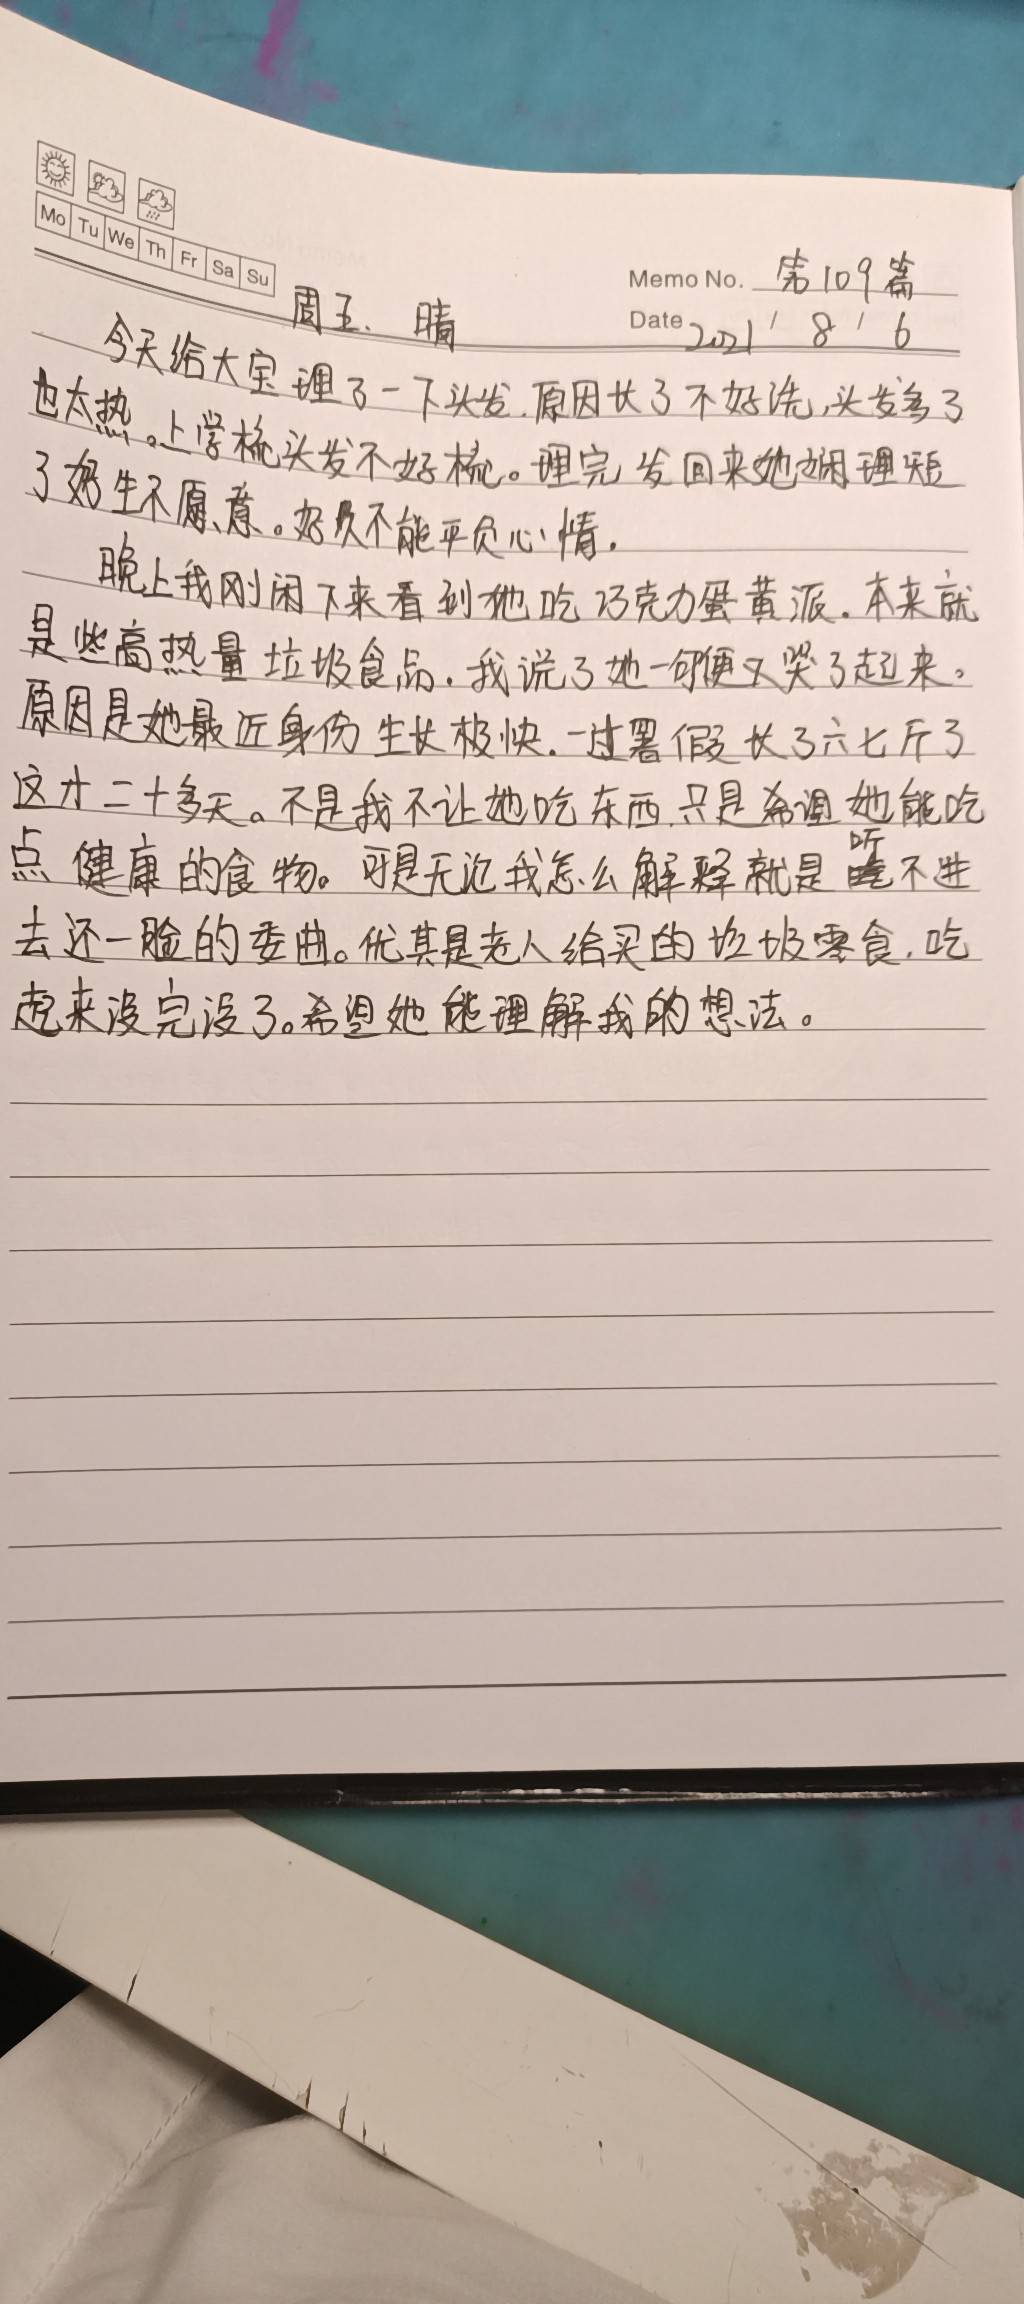 Mo Tu We Th Fr Sa Su
Memo No. 第109篇
周五. 晴
Date 2021 / 8 / 6
今天给大宝理了一下头发.原因长了不好洗,头发多了
也太热。上学梳头发不好梳。理完发回来她嫌理短
了好生不愿意。好久不能平负心情.
晚上我刚闲下来看到她吃巧克力蛋黄派.本来就
是些高热量垃圾食品.我说了她一句便又哭了起来。
原因是她最近身份生长极快.一过署假长了六七斤了
这才二十多天。不是我不让她吃东西.只是希望她能吃
点健康的食物。可是无论我怎么解释就是听不进
去还一脸的委曲。优其是老人给买的垃圾零食.吃
起来没完没了。希望她能理解我的想法。